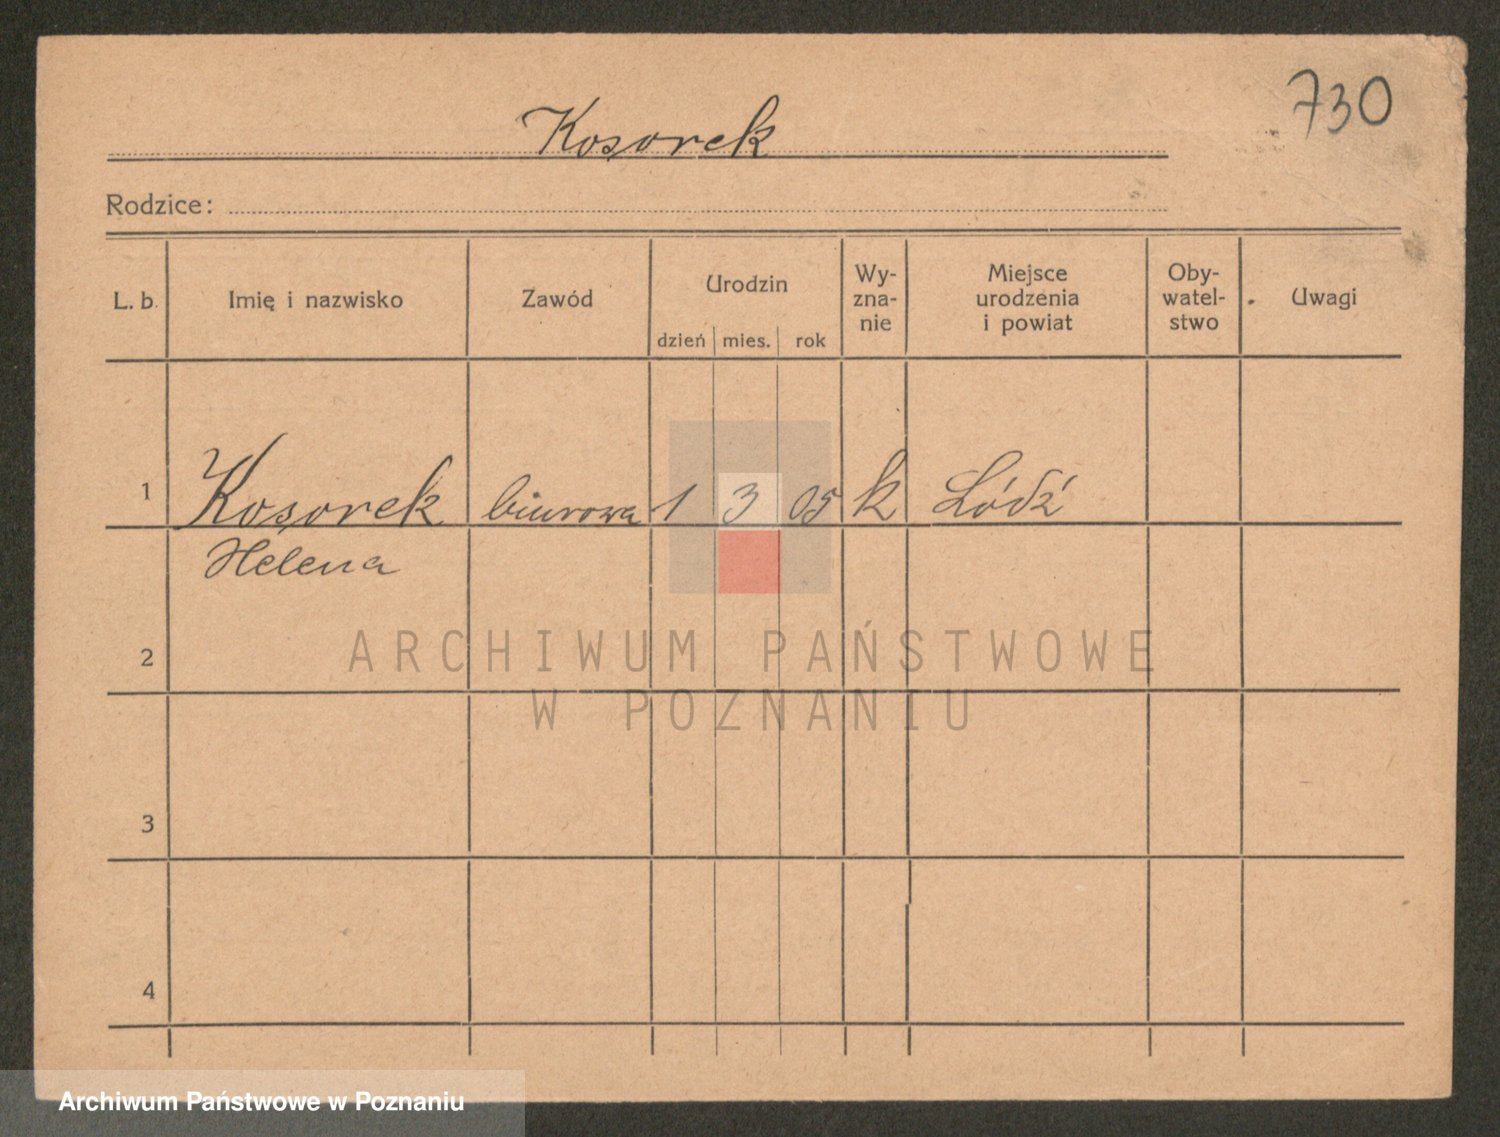 730
Kosorek
Rodzice:
L. b. Imię i nazwisko Zawód Urodzin dzień mies. rok Wy- zna- nie Miejsce urodzenia i powiat Oby- watel- stwo Uwagi
1 Kosorek biurowa 1 3 05 k Łódź
Helena
2
ARCHIWUM PAŃSTWOWE
W POZNANIU
3
4
Archiwum Państwowe w Poznaniu